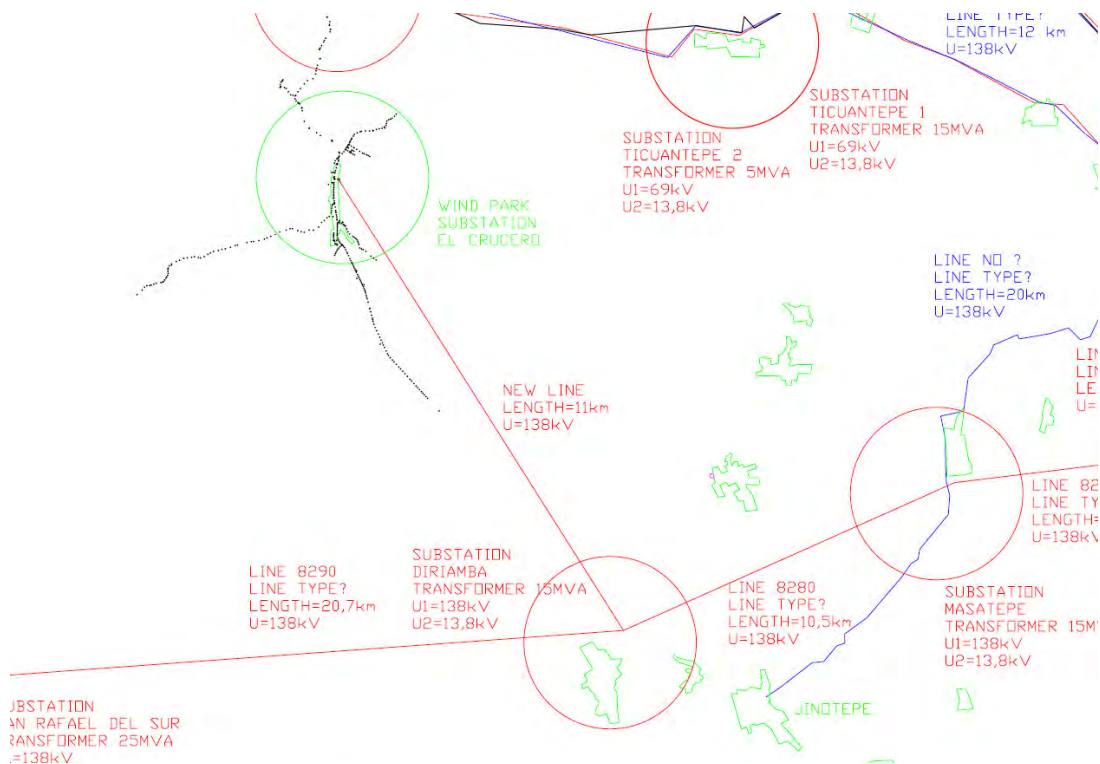 LINE TYPE?
LENGTH=12 km
U=138kV
SUBSTATION
TICUANTEPE 1
TRANSFORMER 15MVA
U1=69kV
U2=13,8kV
SUBSTATION
TICUANTEPE 2
TRANSFORMER 5MVA
U1=69kV
U2=13,8kV
WIND PARK
SUBSTATION
EL CRUCERO
LINE NO ?
LINE TYPE?
LENGTH=20km
U=138kV
LIN
LIN
LE
U=
NEW LINE
LENGTH=11km
U=138kV
LINE 82
LINE TY
LENGTH=
U=138kV
LINE 8290
LINE TYPE?
LENGTH=20,7km
U=138kV
SUBSTATION
DIRIAMBA
TRANSFORMER 15MVA
U1=138kV
U2=13,8kV
LINE 8280
LINE TYPE?
LENGTH=10,5km
U=138kV
SUBSTATION
MASATEPE
TRANSFORMER 15M
U1=138kV
U2=13,8kV
JINOTEPE
UBSTATION
AN RAFAEL DEL SUR
RANSFORMER 25MVA
=138kV